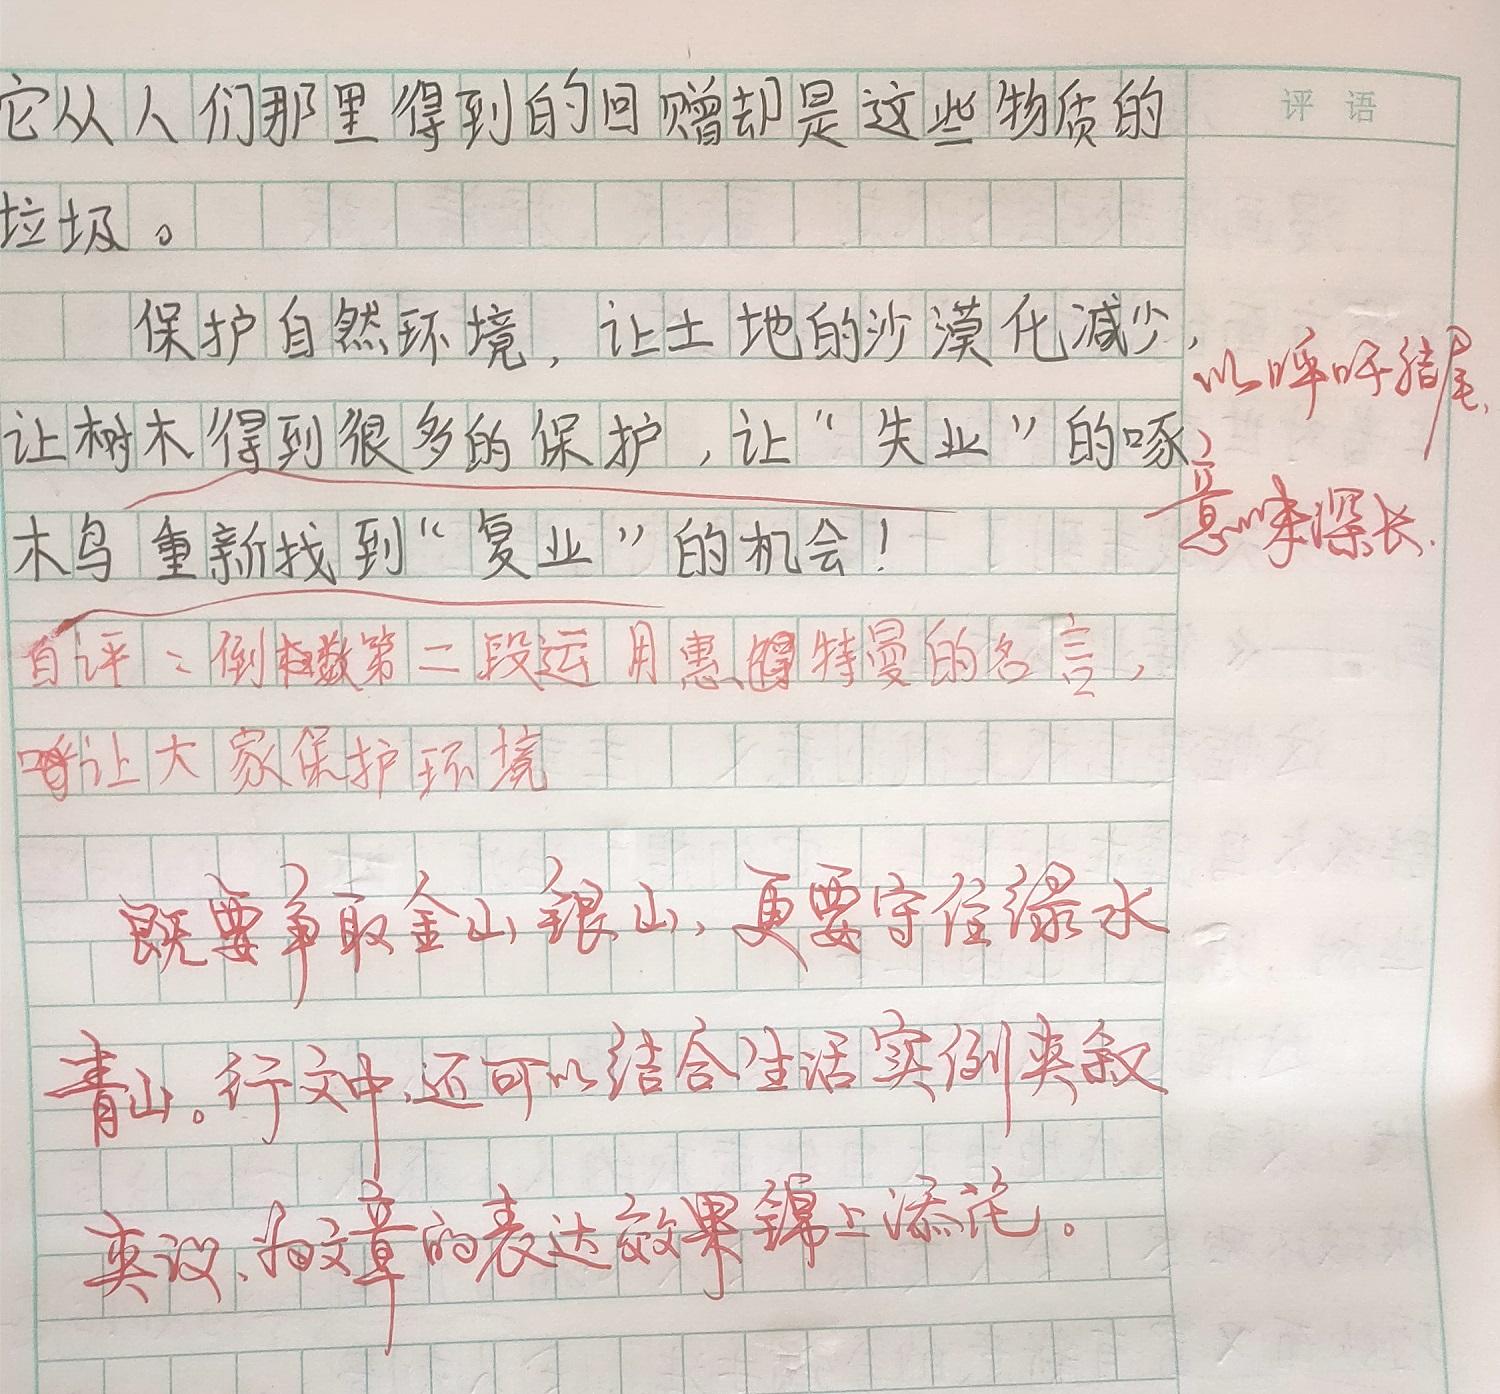 它从人们那里得到的回赠却是这些物质的
评 语
垃圾。
保护自然环境，让土地的沙漠化减少，
以呼吁结尾，
让树木得到很多的保护，让“失业”的啄
意味深长.
木鸟重新找到“复业”的机会！
自评：倒数第二段运用惠特曼的名言，
让大家保护环境
既要争取金山银山、更要守住绿水
青山。行文中，还可以结合生活实例夹叙
夹议、为文章的表达效果锦上添花。